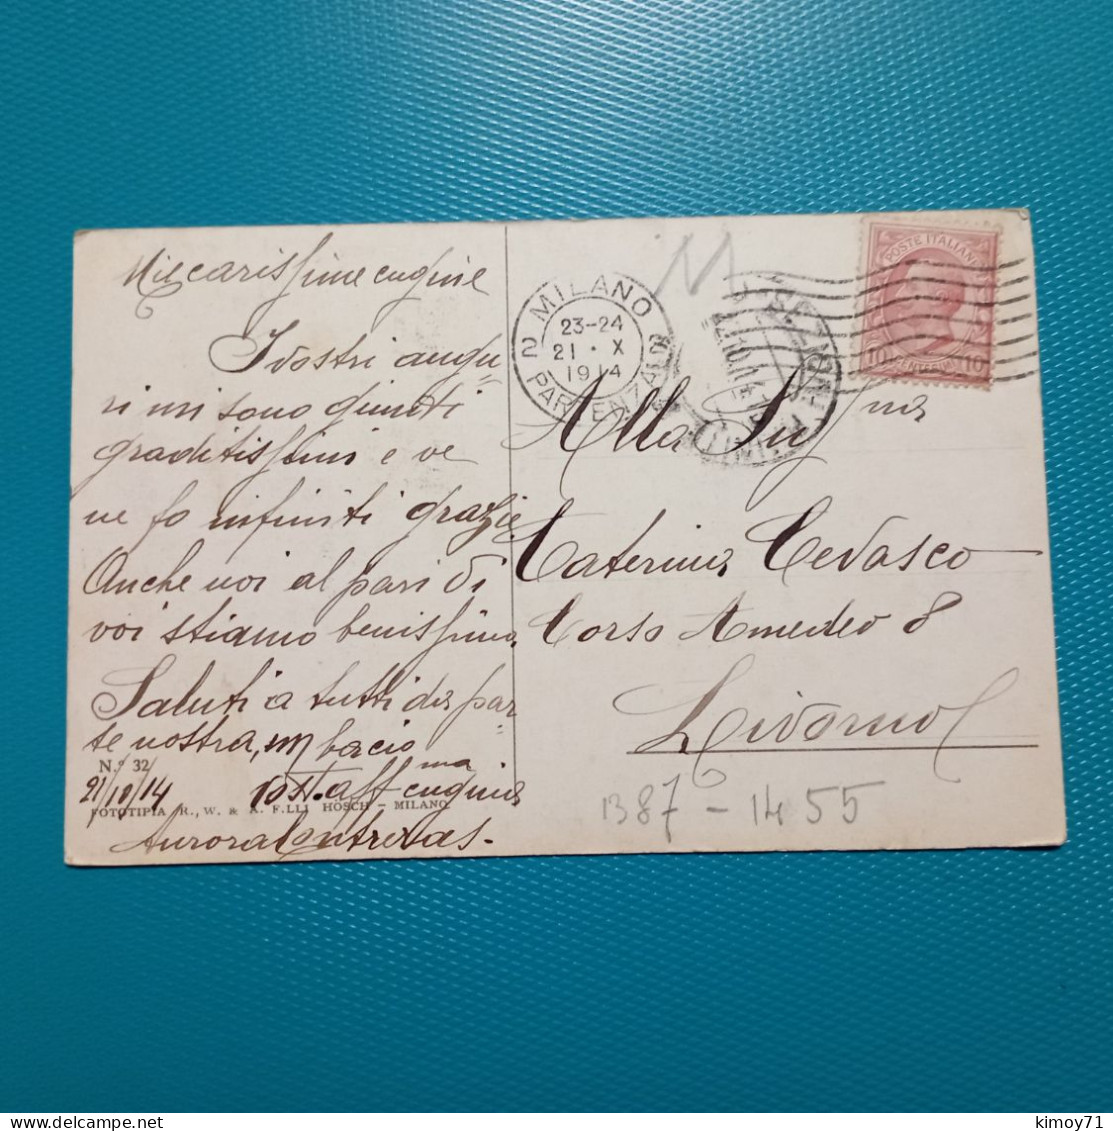 Mie carissime cugine
I vostri augu-
ri mi sono giunti
graditissimi e ve
ne fo infiniti grazie
Anche noi al pari di
voi stiamo benissimo
Saluti a tutti da par-
te nostra, un bacio
N.° 32
21/10/14 vost. aff.ma cugina
FOTOTIPIA R., W. & A. F.LLI HÖSCH - MILANO
Aurora Contrevas-
MILANO
23-24
21 · X
1914
2 PARTENZA
POSTE ITALIANE
10 CENTESIMI 10
Alla Sig.na
Caterina Cevasco
Corso Amedeo 8
Livorno
1387 - 1455
kimoy71